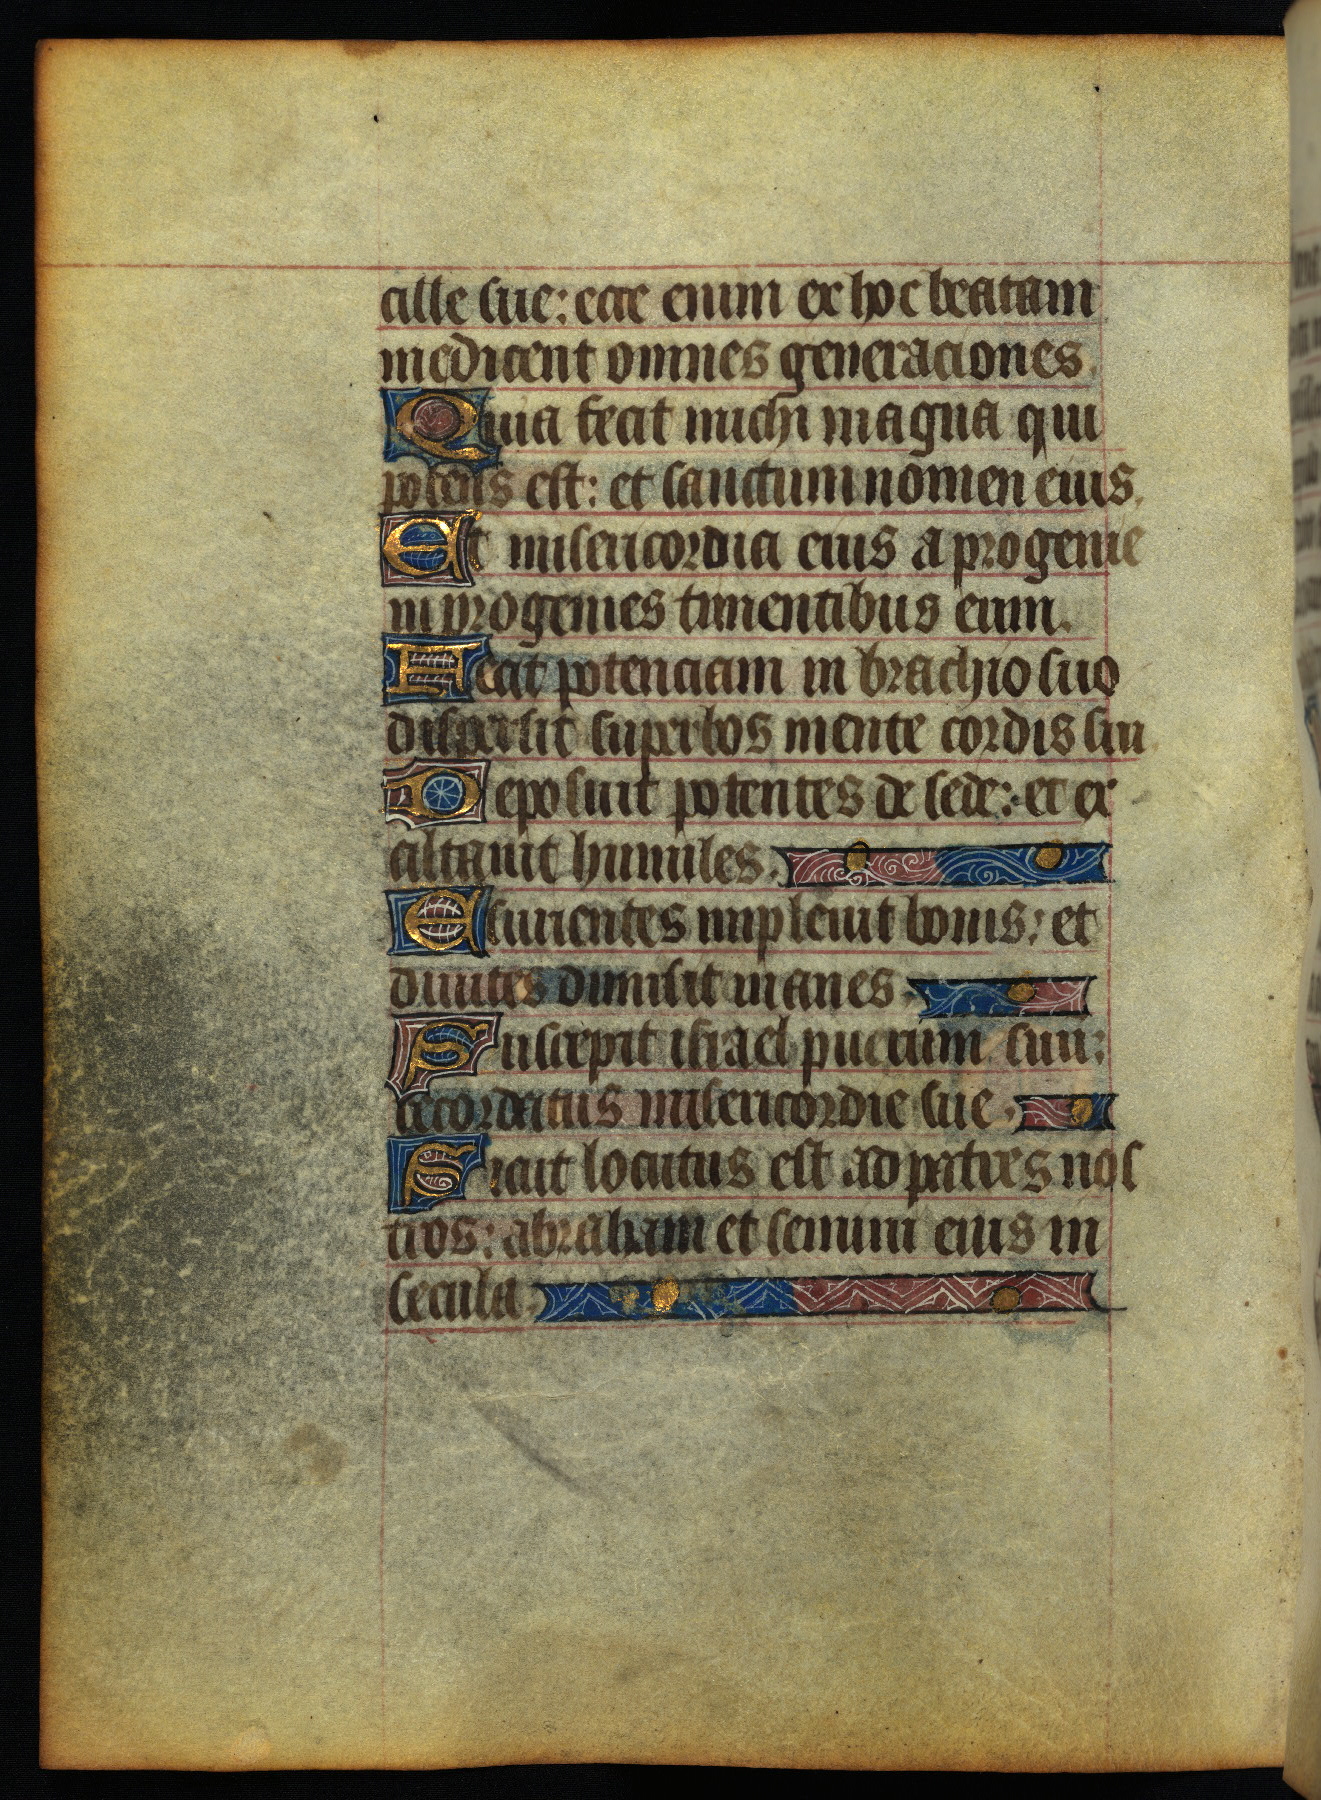 cille sue: ecce enim ex hoc beatam
me dicent omnes generaciones.
Quia fecit michi magna qui
potens est: et sanctum nomen eius.
Et misericordia eius a progenie
in progenies timentibus eum.
Fecit potenciam in brachio suo
dispersit superbos mente cordis sui
Deposuit potentes de sede: et ex
altauit humiles.
Esurientes impleuit bonis: et
diuites dimisit inanes.
Suscepit israel puerum suu:
recordatus misericordie sue.
Sicut locutus est ad patres nos
tros: abraham et semini eius in
secula.